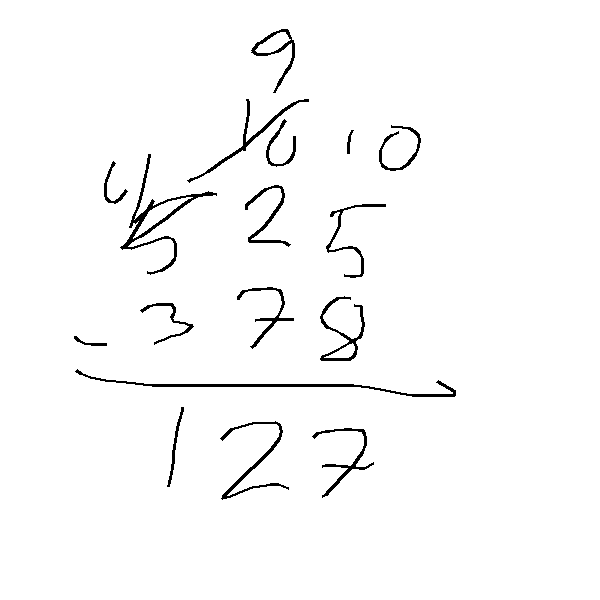 9
10 10
4
525
- 378
127